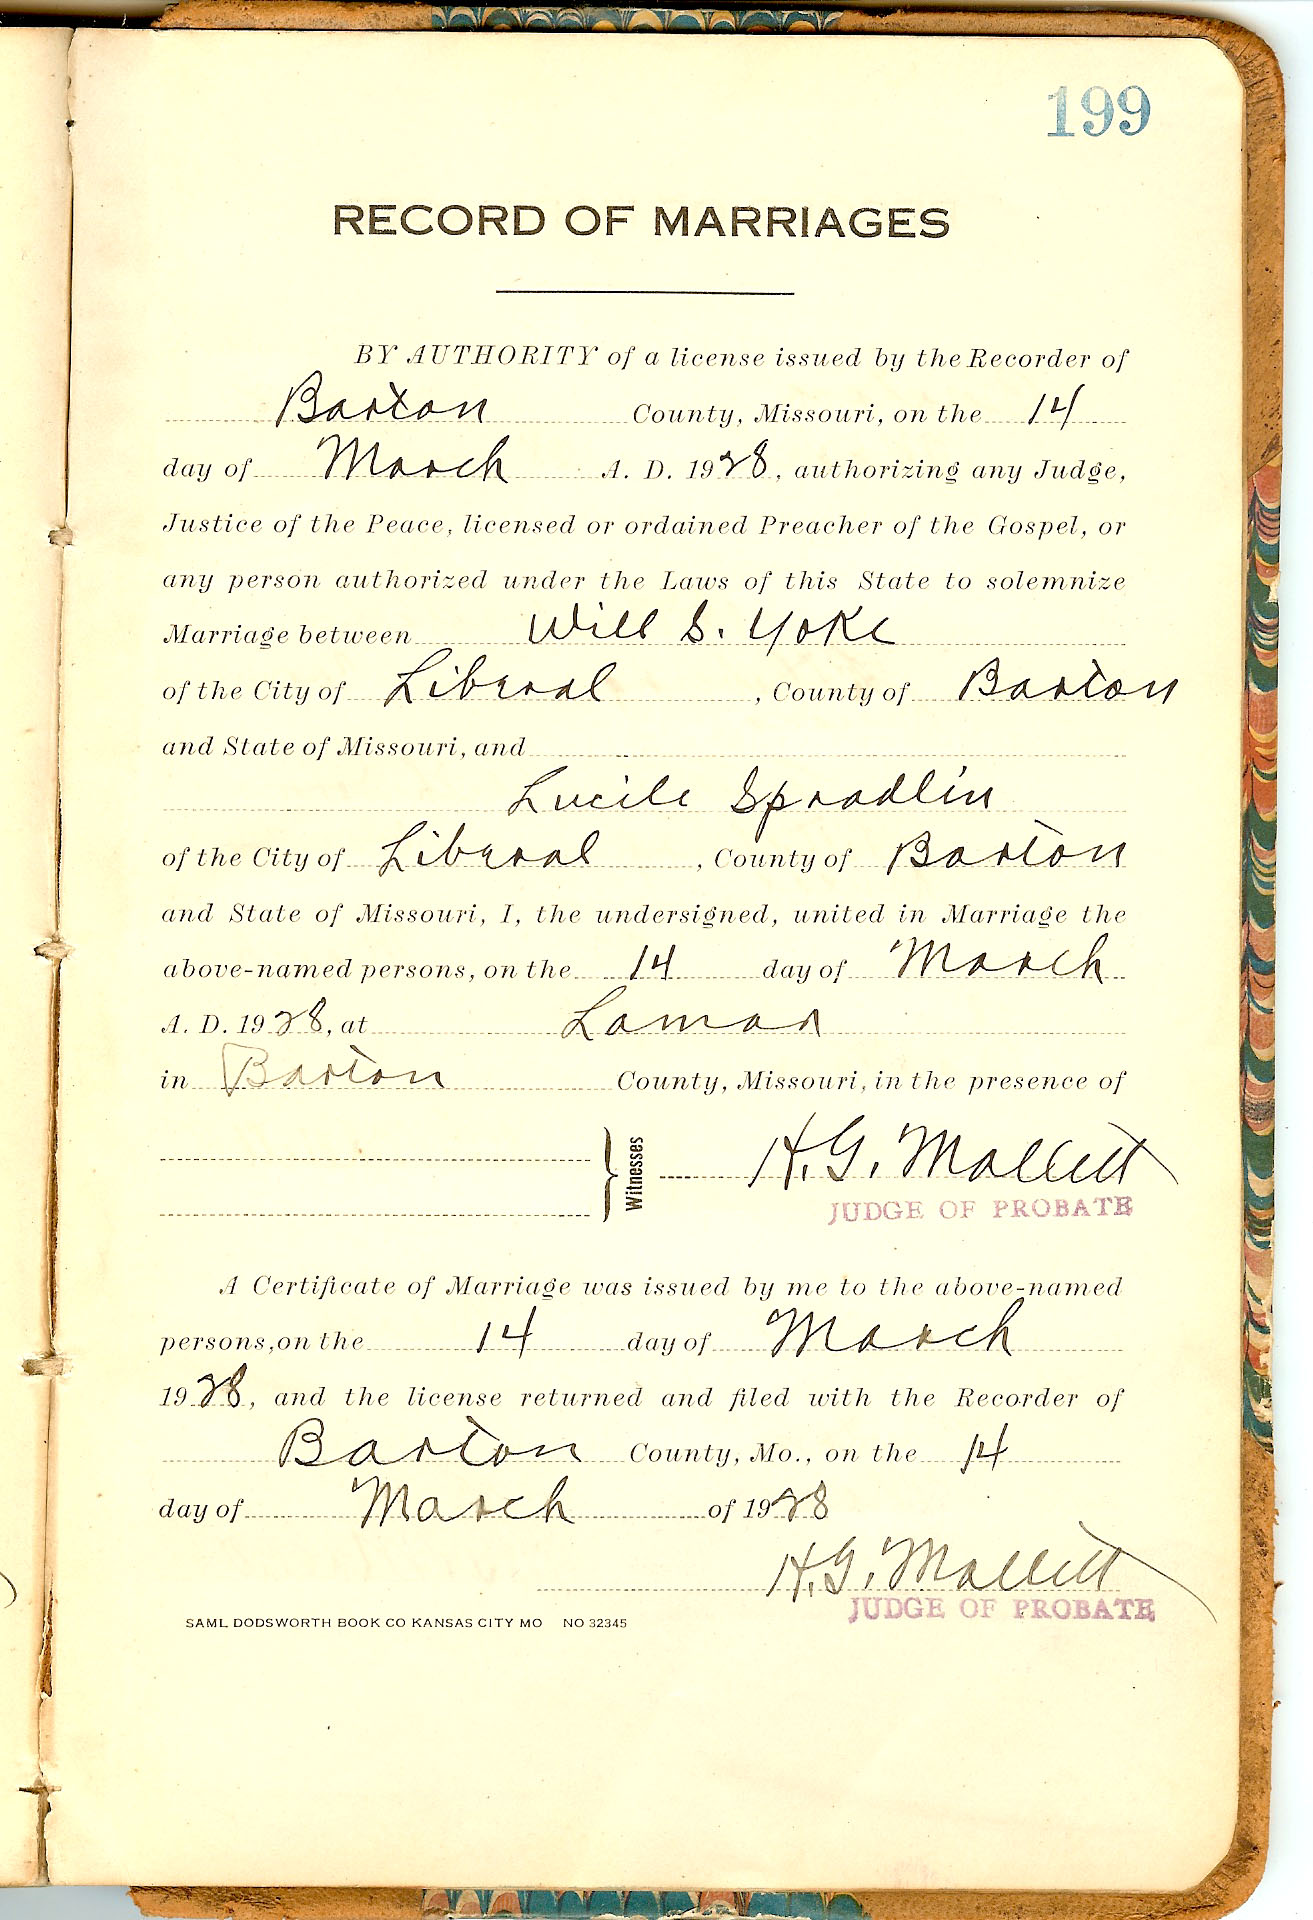 199
RECORD OF MARRIAGES
BY AUTHORITY of a license issued by the Recorder of
Barton County, Missouri, on the 14
day of March A. D. 1928, authorizing any Judge,
Justice of the Peace, licensed or ordained Preacher of the Gospel, or
any person authorized under the Laws of this State to solemnize
Marriage between Will S. Yoke
of the City of Liberal, County of Barton
and State of Missouri, and
Lucile Spradlin
of the City of Liberal, County of Barton
and State of Missouri, I, the undersigned, united in Marriage the
above-named persons, on the 14 day of March
A. D. 1928, at Lamar
in Barton County, Missouri, in the presence of
Witnesses H. G. Mallett
JUDGE OF PROBATE
A Certificate of Marriage was issued by me to the above-named
persons, on the 14 day of March
1928, and the license returned and filed with the Recorder of
Barton County, Mo., on the 14
day of March of 1928
H. G. Mallett
JUDGE OF PROBATE
SAML DODSWORTH BOOK CO KANSAS CITY MO NO 32345